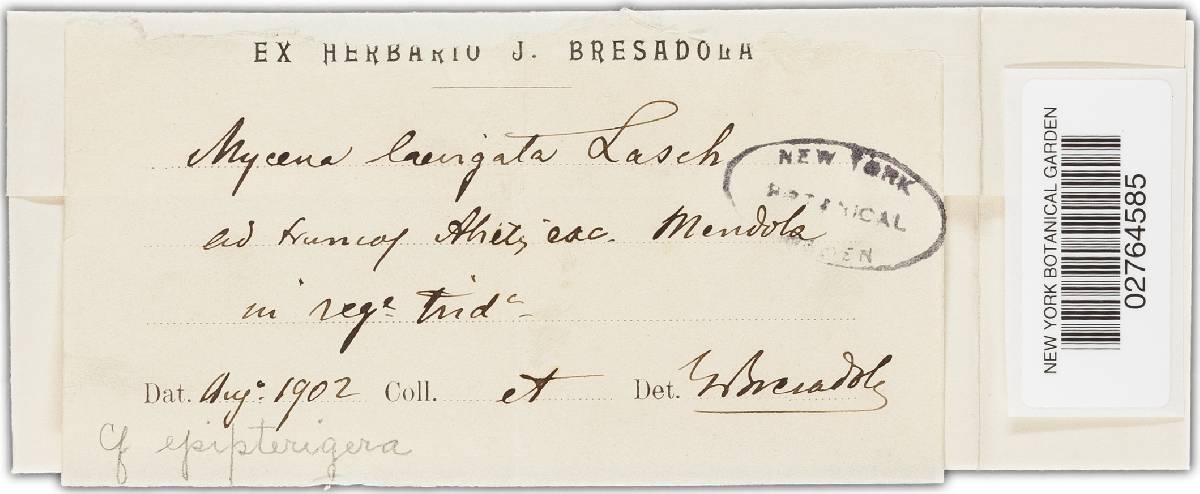 EX HERBARIO J. BRESADOLA
Mycena laevigata Lasch
ad truncos Abietis exc. Mendola
in regᵉ tridᶜ
Dat. Augᵒ 1902 Coll. et Det. GBresadola
Cf epipterigera
NEW YORK
BOTANICAL
GARDEN
NEW YORK BOTANICAL GARDEN
02764585